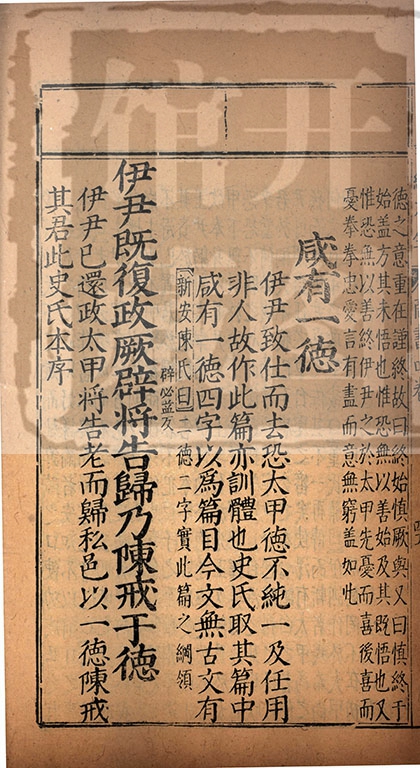 德之意重在謹終故曰終始慎厥與又曰慎終于
始蓋方其未悟也惟恐無以善始及其既悟也又
惟恐無以善終伊尹之於太甲先憂而喜後喜而
憂拳拳忠愛言有盡而意無窮蓋如此
咸有一德
伊尹致仕而去恐太甲德不純一及任用
非人故作此篇亦訓體也史氏取其篇中
咸有一德四字以爲篇目今文無古文有
新安陳氏曰一德二字實此篇之綱領
伊尹既復政厥辟將告歸乃陳戒于德
辟必益反
伊尹已還政太甲將告老而歸私邑以一德陳戒
其君此史氏本序